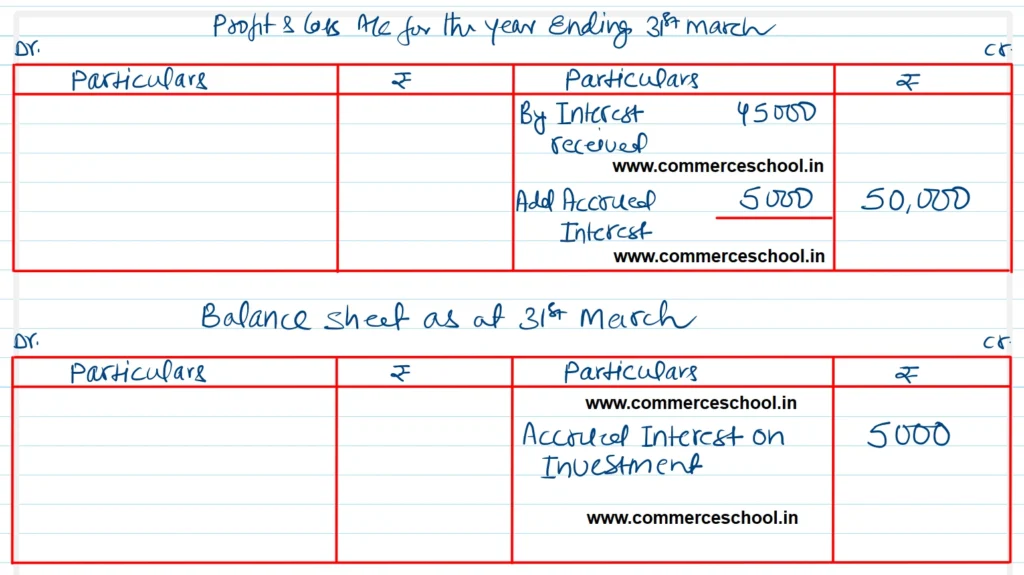 Profit & loss A/c for the year Ending 31st march
Dr. Cr.
Particulars ₹ Particulars ₹
By Interest 45000
received
www.commerceschool.in
Add Accrued 5000 50,000
Interest
www.commerceschool.in
Balance sheet as at 31st March
Dr. Cr.
Particulars ₹ Particulars ₹
www.commerceschool.in
Accrued Interest on 5000
Investment
www.commerceschool.in